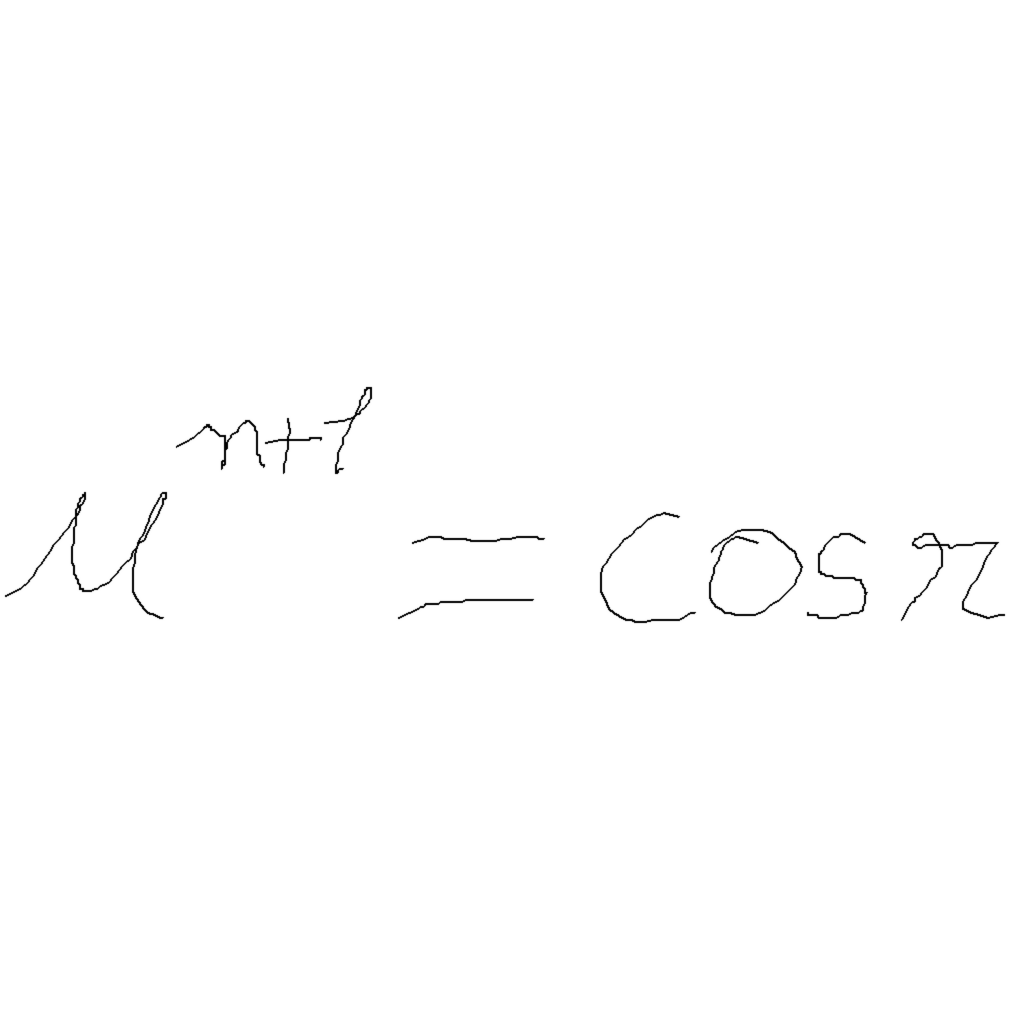 u^{n+1} = cos π